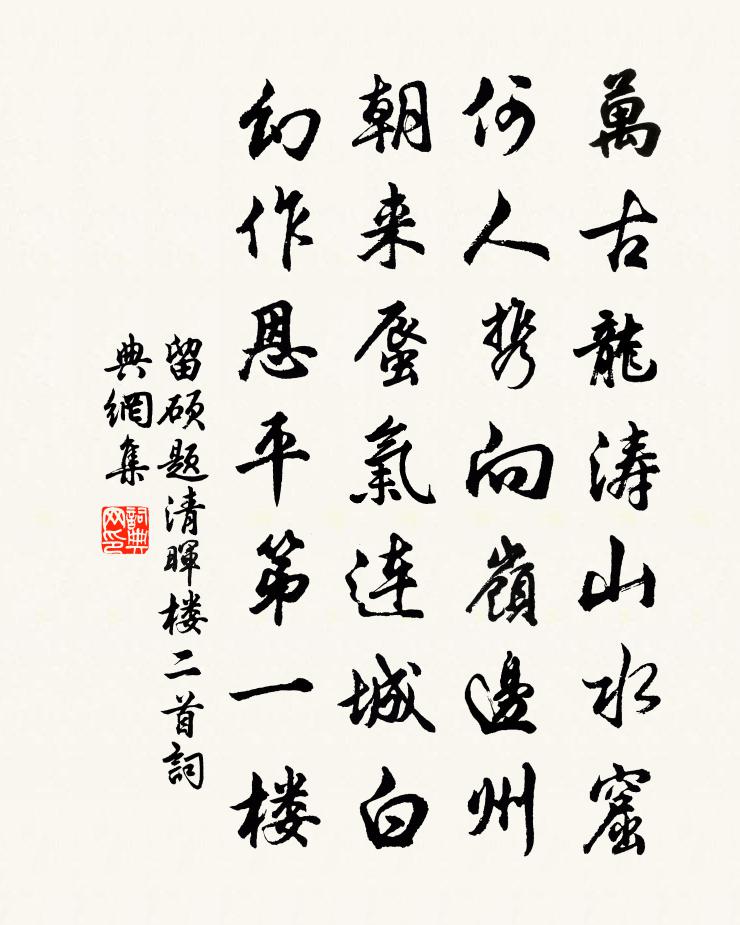 萬古龍涛山水窟
何人携向嶺邊州
朝来蜃氣連城白
幻作恩平第一楼
留硕題清暉楼二首詞
典網集
詞典
网印